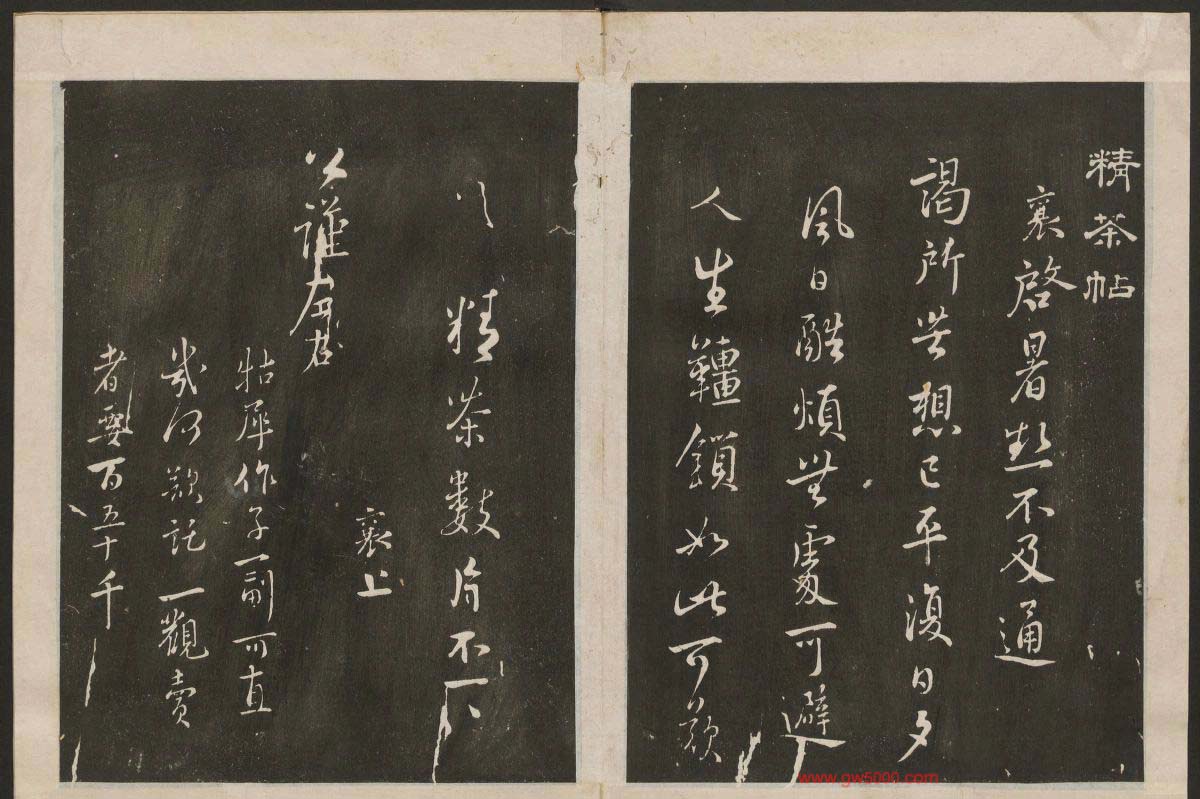 精茶帖
襄啓暑熱不及通
謁所苦想已平復日夕
風日酷煩無處可避
人生韁鎖如此可歎
〻精茶數片不一一
襄上
公謹左右
牯犀作子一副可直
幾何欲託一觀賣
者要百五十千
www.gw5000.com